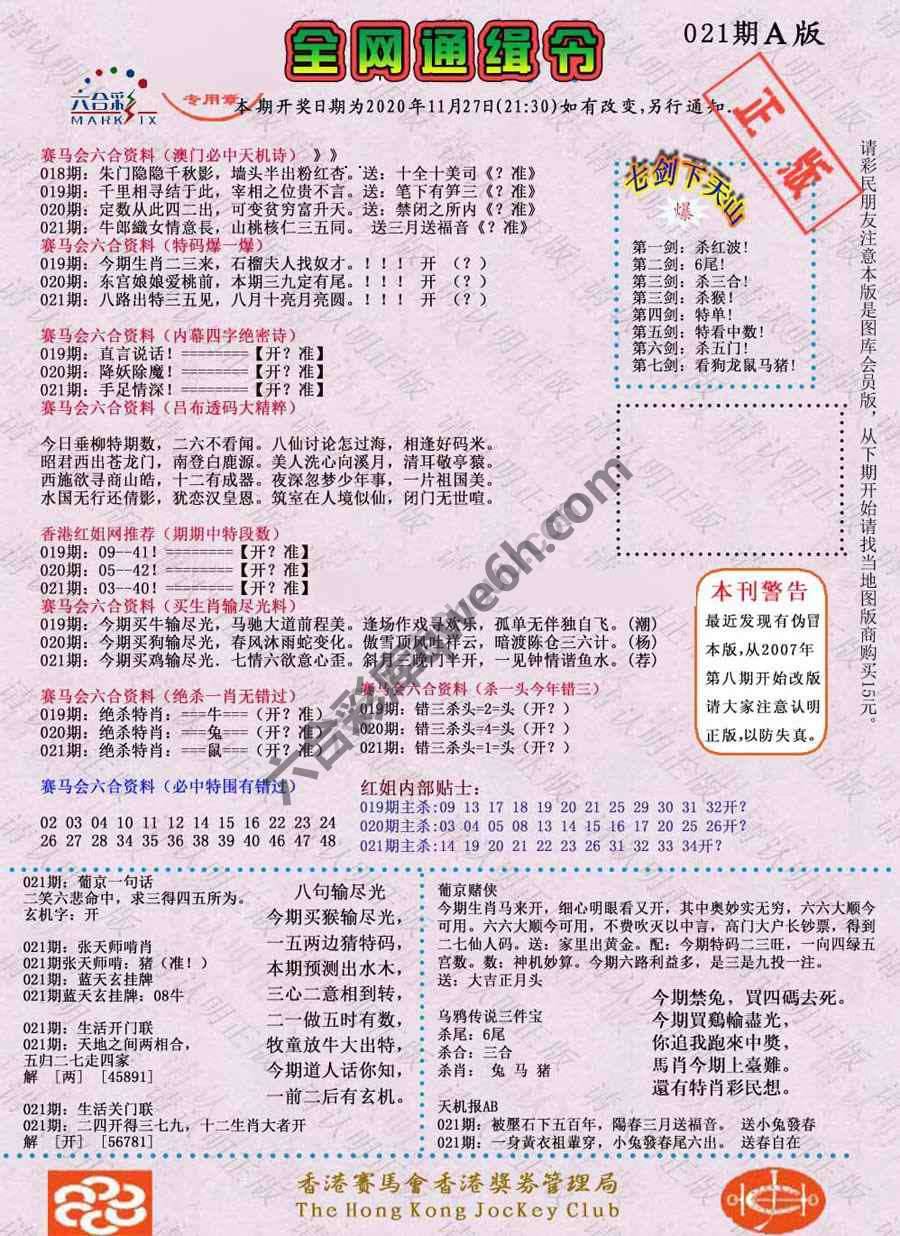 全网通缉令
021期A版
六合彩
MARK SIX
专用章
本期开奖日期为2020年11月27日(21:30)如有改变,另行通知.
正版
赛马会六合资料（澳门必中天机诗）》》
018期: 朱门隐隐千秋影, 墙头半出粉红杏. 送: 十全十美司《? 准》
019期: 千里相寻结于此, 宰相之位贵不言. 送: 笔下有笋三《? 准》
020期: 定数从此四二出, 可变贫穷富升天. 送: 禁闭之所内《? 准》
021期: 牛郎織女情意長, 山桃核仁三五同。 送三月送福音《? 准》
赛马会六合资料（特码爆一爆）
019期: 今期生肖二三来, 石榴夫人找奴才.！！！ 开 （？）
020期: 东宫娘娘爱桃前, 本期三九定有尾.！！！ 开 （？）
021期: 八路出特三五见, 八月十亮月亮圆.！！！ 开 （？）
赛马会六合资料（内幕四字绝密诗）
019期: 直言说话! ========【开? 准】
020期: 降妖除魔! ========【开? 准】
021期: 手足情深! ========【开? 准】
赛马会六合资料（吕布透码大精粹）
今日垂柳特期数, 二六不看闻。八仙讨论怎过海, 相逢好码米。
昭君西出苍龙门, 南登白鹿源。美人洗心向溪月, 清耳敬亭猿。
西施欲寻商山皓, 十二有成器。夜深忽梦少年事, 一片祖国美。
水国无行还倩影, 犹恋汉皇恩。筑室在人境似仙, 闭门无世喧。
香港红姐网推荐（期期中特段数）
019期: 09--41! ========【开? 准】
020期: 05--42! ========【开? 准】
021期: 03--40! ========【开? 准】
赛马会六合资料（买生肖输尽光料）
019期: 今期买牛输尽光, 马驰大道前程美. 逢场作戏寻欢乐, 孤单无伴独自飞. (潮)
020期: 今期买狗输尽光, 春风沐雨蛇变化. 傲雪顶风吐祥云, 暗渡陈仓三六计. (杨)
021期: 今期买鸡输尽光. 七情六欲意心歪. 斜月三晚门半开, 一见钟情谐鱼水. (荐)
赛马会六合资料（绝杀一肖无错过）
019期: 绝杀特肖: ===牛===（开? 准）
020期: 绝杀特肖: ===兔===（开? 准）
021期: 绝杀特肖: ===鼠===（开? 准）
赛马会六合资料（杀一头今年错三）
019期: 错三杀头=2=头（开? ）
020期: 错三杀头=4=头（开? ）
021期: 错三杀头=1=头（开? ）
赛马会六合资料（必中特围有错过）
02 03 04 10 11 12 14 15 16 22 23 24
26 27 28 34 35 36 38 39 40 46 47 48
红姐内部贴士:
019期主杀:09 13 17 18 19 20 21 25 29 30 31 32开?
020期主杀:03 04 05 08 13 14 15 16 17 20 25 26开?
021期主杀:14 19 20 21 22 23 26 31 32 33 34开?
七剑下天山
爆
第一剑: 杀红波!
第二剑: 6尾!
第三剑: 杀三合!
第三剑: 杀猴!
第四剑: 特单!
第五剑: 特看中数!
第六剑: 杀五门!
第七剑: 看狗龙鼠马猪!
请彩民朋友注意本版是图库会员版, 从下期开始请找当地图版商购买15元。
本刊警告
最近发现有伪冒
本版,从2007年
第八期开始改版
请大家注意认明
正版,以防失真。
六合彩库 nwe6h.com
021期: 葡京一句话
二笑六悲命中, 求三得四五所为。
玄机字: 开
021期: 张天师啃肖
021期张天师啃: 猪（准!）
021期: 蓝天玄挂牌
021期蓝天玄挂牌: 08牛
021期: 生活开门联
021期: 天地之间两相合,
五归二七走四家
解 [两] [45891]
021期: 生活关门联
021期: 二四开得三七九, 十二生肖大者开
解 [开] [56781]
八句输尽光
今期买猴输尽光,
一五两边猜特码,
本期预测出水木,
三心二意相到转,
二一做五时有数,
牧童放牛大出特,
今期道人话你知,
一前二后有玄机。
葡京赌侠
今期生肖马来开, 细心明眼看又开, 其中奥妙实无穷, 六六大顺今
可用。六六大顺今可用, 不费吹灭以中言, 高门大户长钞票, 得到
二七仙人码。送: 家里出黄金。配: 今期特码二三旺, 一向四绿五
宫数。数: 神机妙算。今期六路利益多, 是三是九投一注。
送: 大吉正月头
乌鸦传说三件宝
杀尾: 6尾
杀合: 三合
杀肖: 兔 马 猪
今期禁兔, 買四碼去死。
今期買鷄輸盡光,
你追我跑來中獎,
馬肖今期上臺難。
還有特肖彩民想.
天机报AB
021期: 被壓石下五百年, 陽春三月送福音。 送小兔發春
021期: 一身黃衣祖輩穿, 小兔發春尾六出。 送春自在
香港賽馬會香港獎券管理局
The Hong Kong JocKey Club